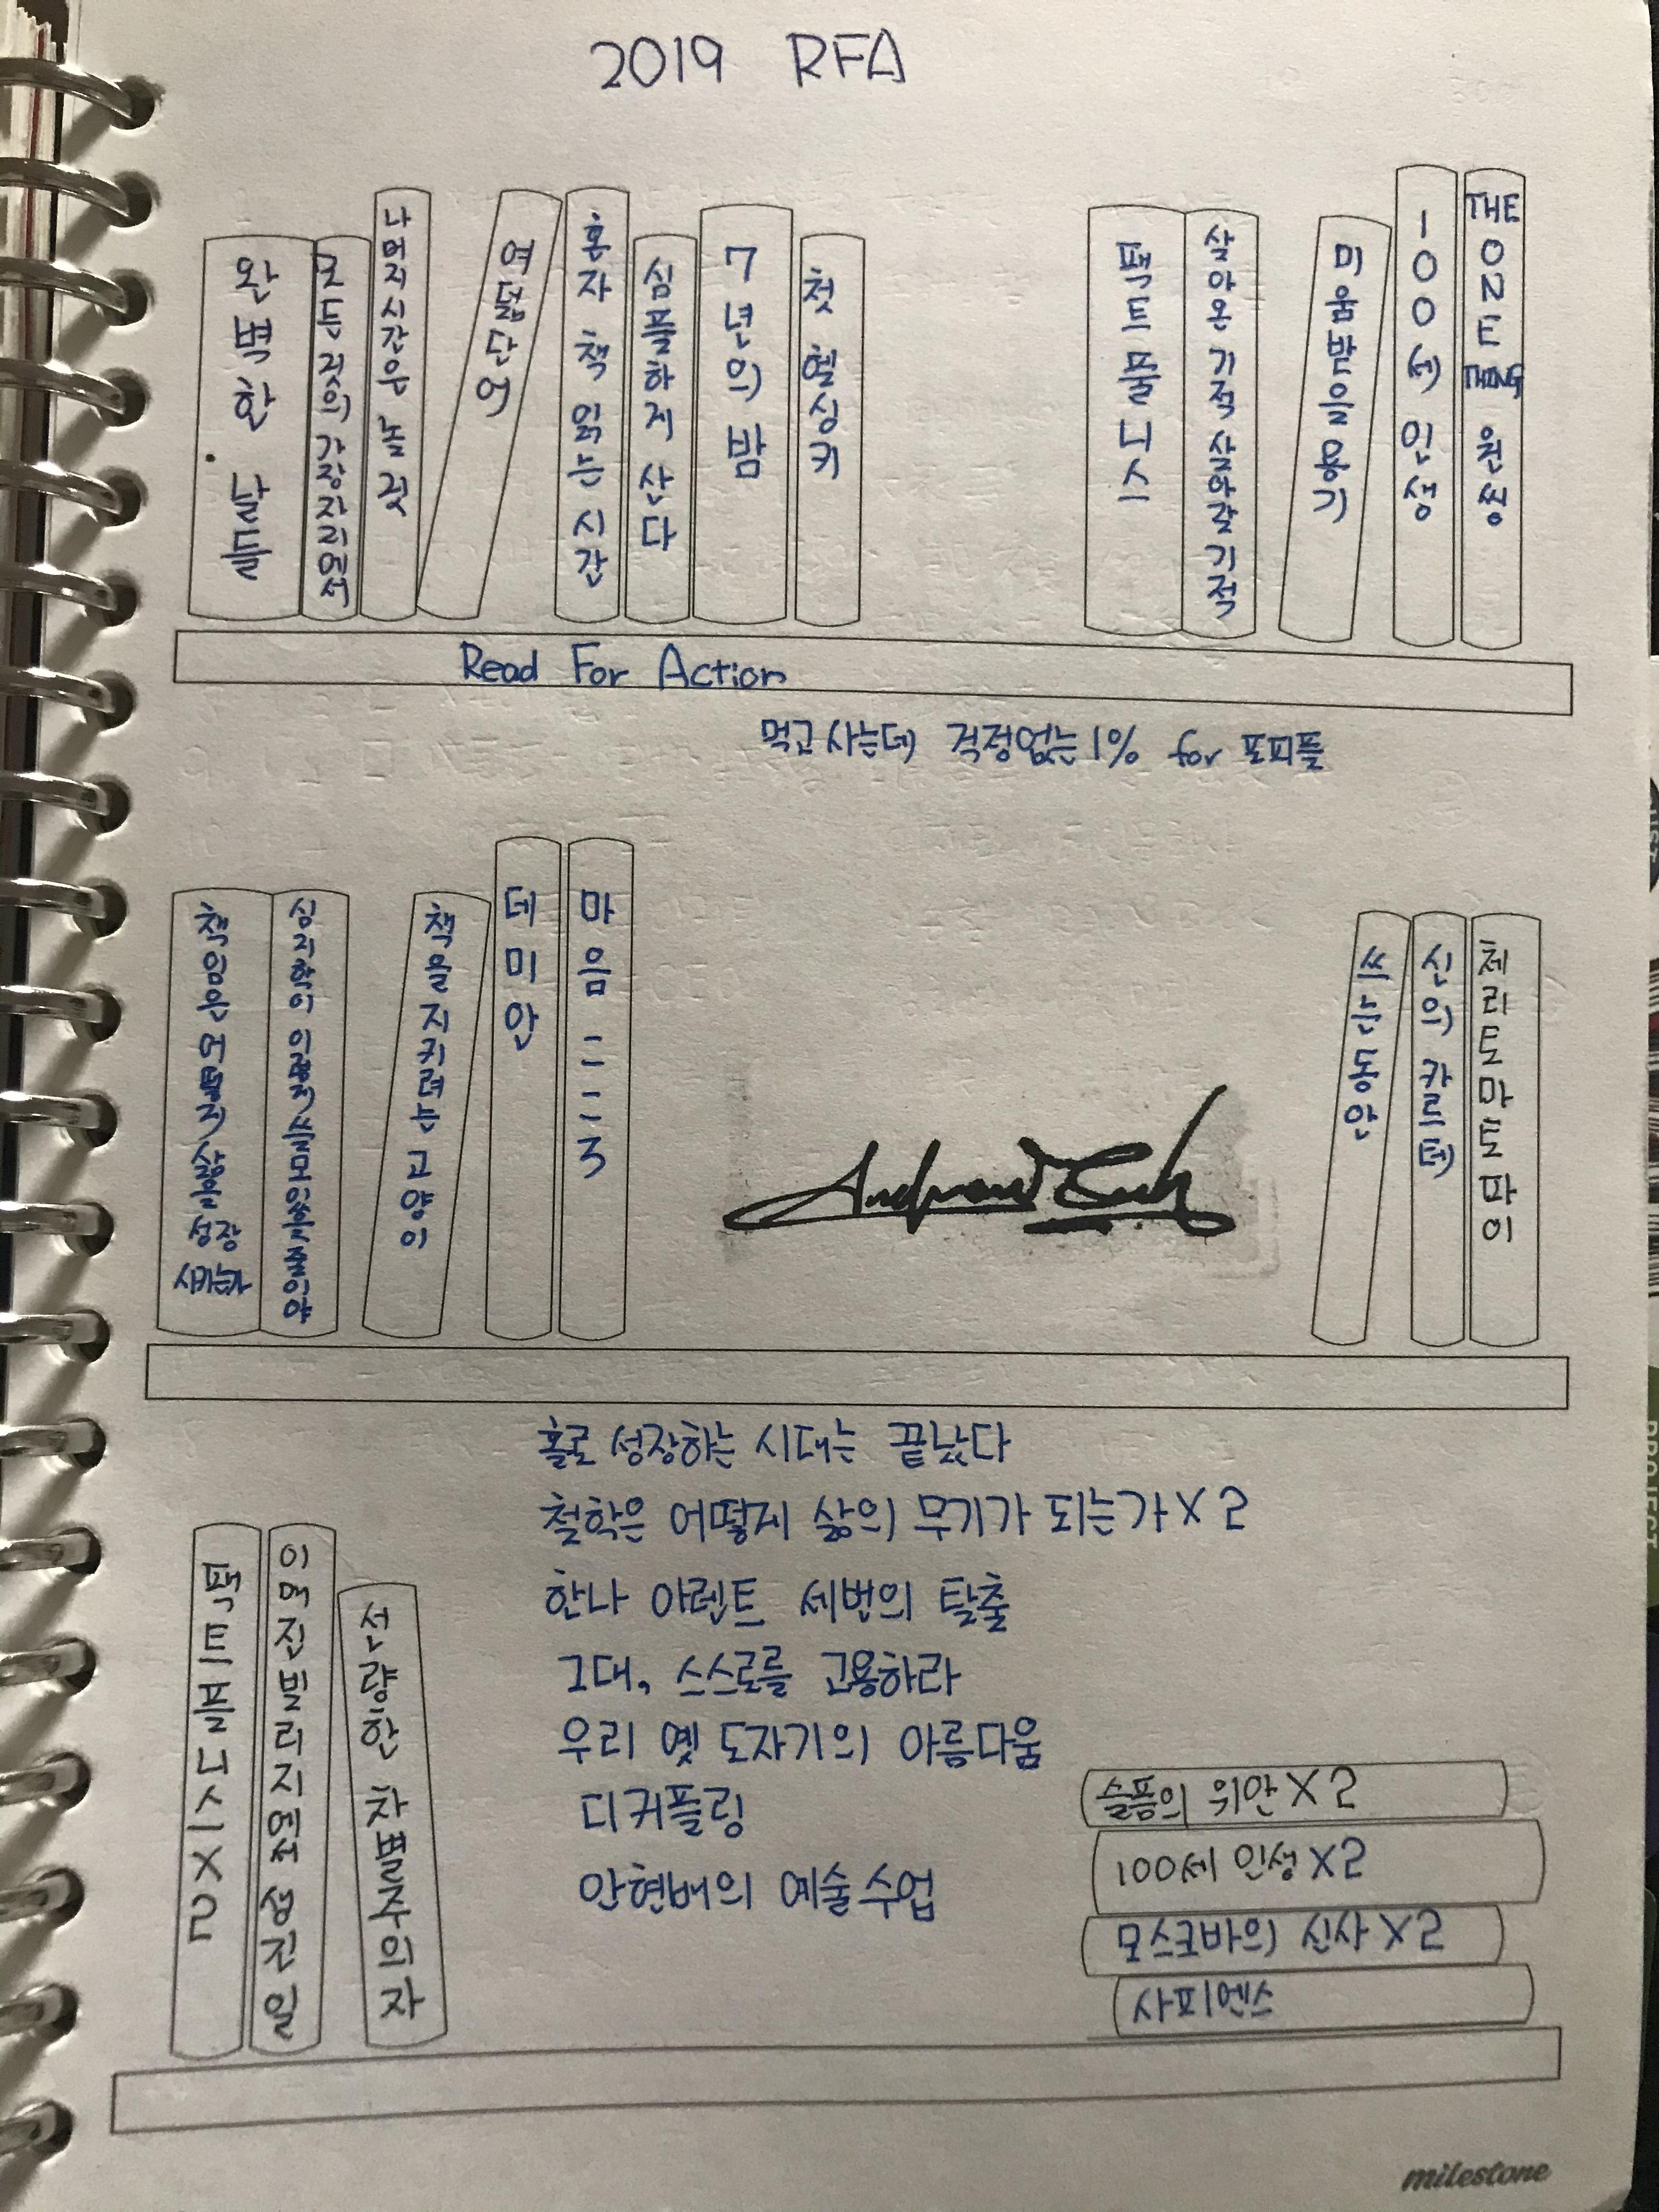 2019 RFA
완벽한 날들
모든 것의 가장자리에서
나머지시간은 놀 것
여덟단어
혼자 책 읽는 시간
심플하게 산다
7년의 밤
첫 헬싱키
팩트풀니스
살아온 기적 살아갈 기적
미움받을용기
100세 인생
THE ONE
Read For Action
먹고사는데 걱정없는1% for 포피플
책임은 어떻게 삶을 성장시키는가
심리학이 이렇게 쓸모있을줄이야
책을지키려는 고양이
데미안
마음 ㅡㅡㅡ3
쓰는동안
신의 카르테
체리토마토파이
홀로 성장하는 시대는 끝났다
철학은 어떻게 삶의 무기가 되는가X2
한나 아렌트 세번의 탈출
그대, 스스로를 고용하라
우리 옛 도자기의 아름다움
디커플링
안현배의 예술수업
팩트풀니스X2
이머진빌리지에서 생긴 일
선량한 차별주의자
슬픔의 위안X2
100세 인생X2
모스크바의 신사X2
사피엔스
milestone